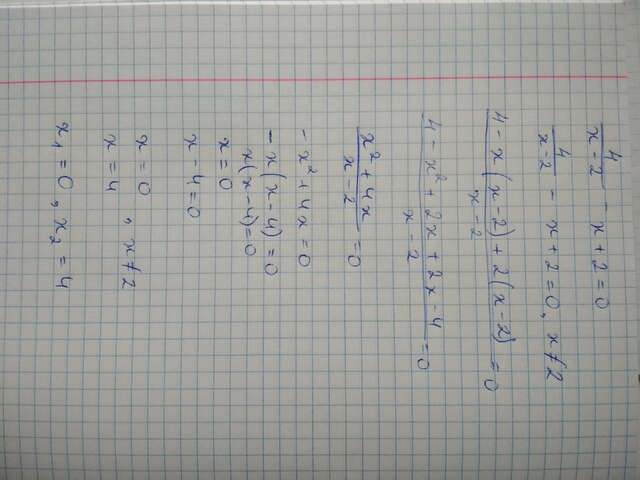 4/(x-2) - x + 2 = 0
4/(x-2) - x + 2 = 0, x ≠ 2
(4 - x(x-2) + 2(x-2))/(x-2) = 0
(4 - x² + 2x + 2x - 4)/(x-2) = 0
(x² + 4x)/(x-2) = 0
- x² + 4x = 0
- x(x-4) = 0
x(x-4) = 0
x = 0
x - 4 = 0
x = 0
x = 4 , x ≠ 2
x₁ = 0, x₂ = 4